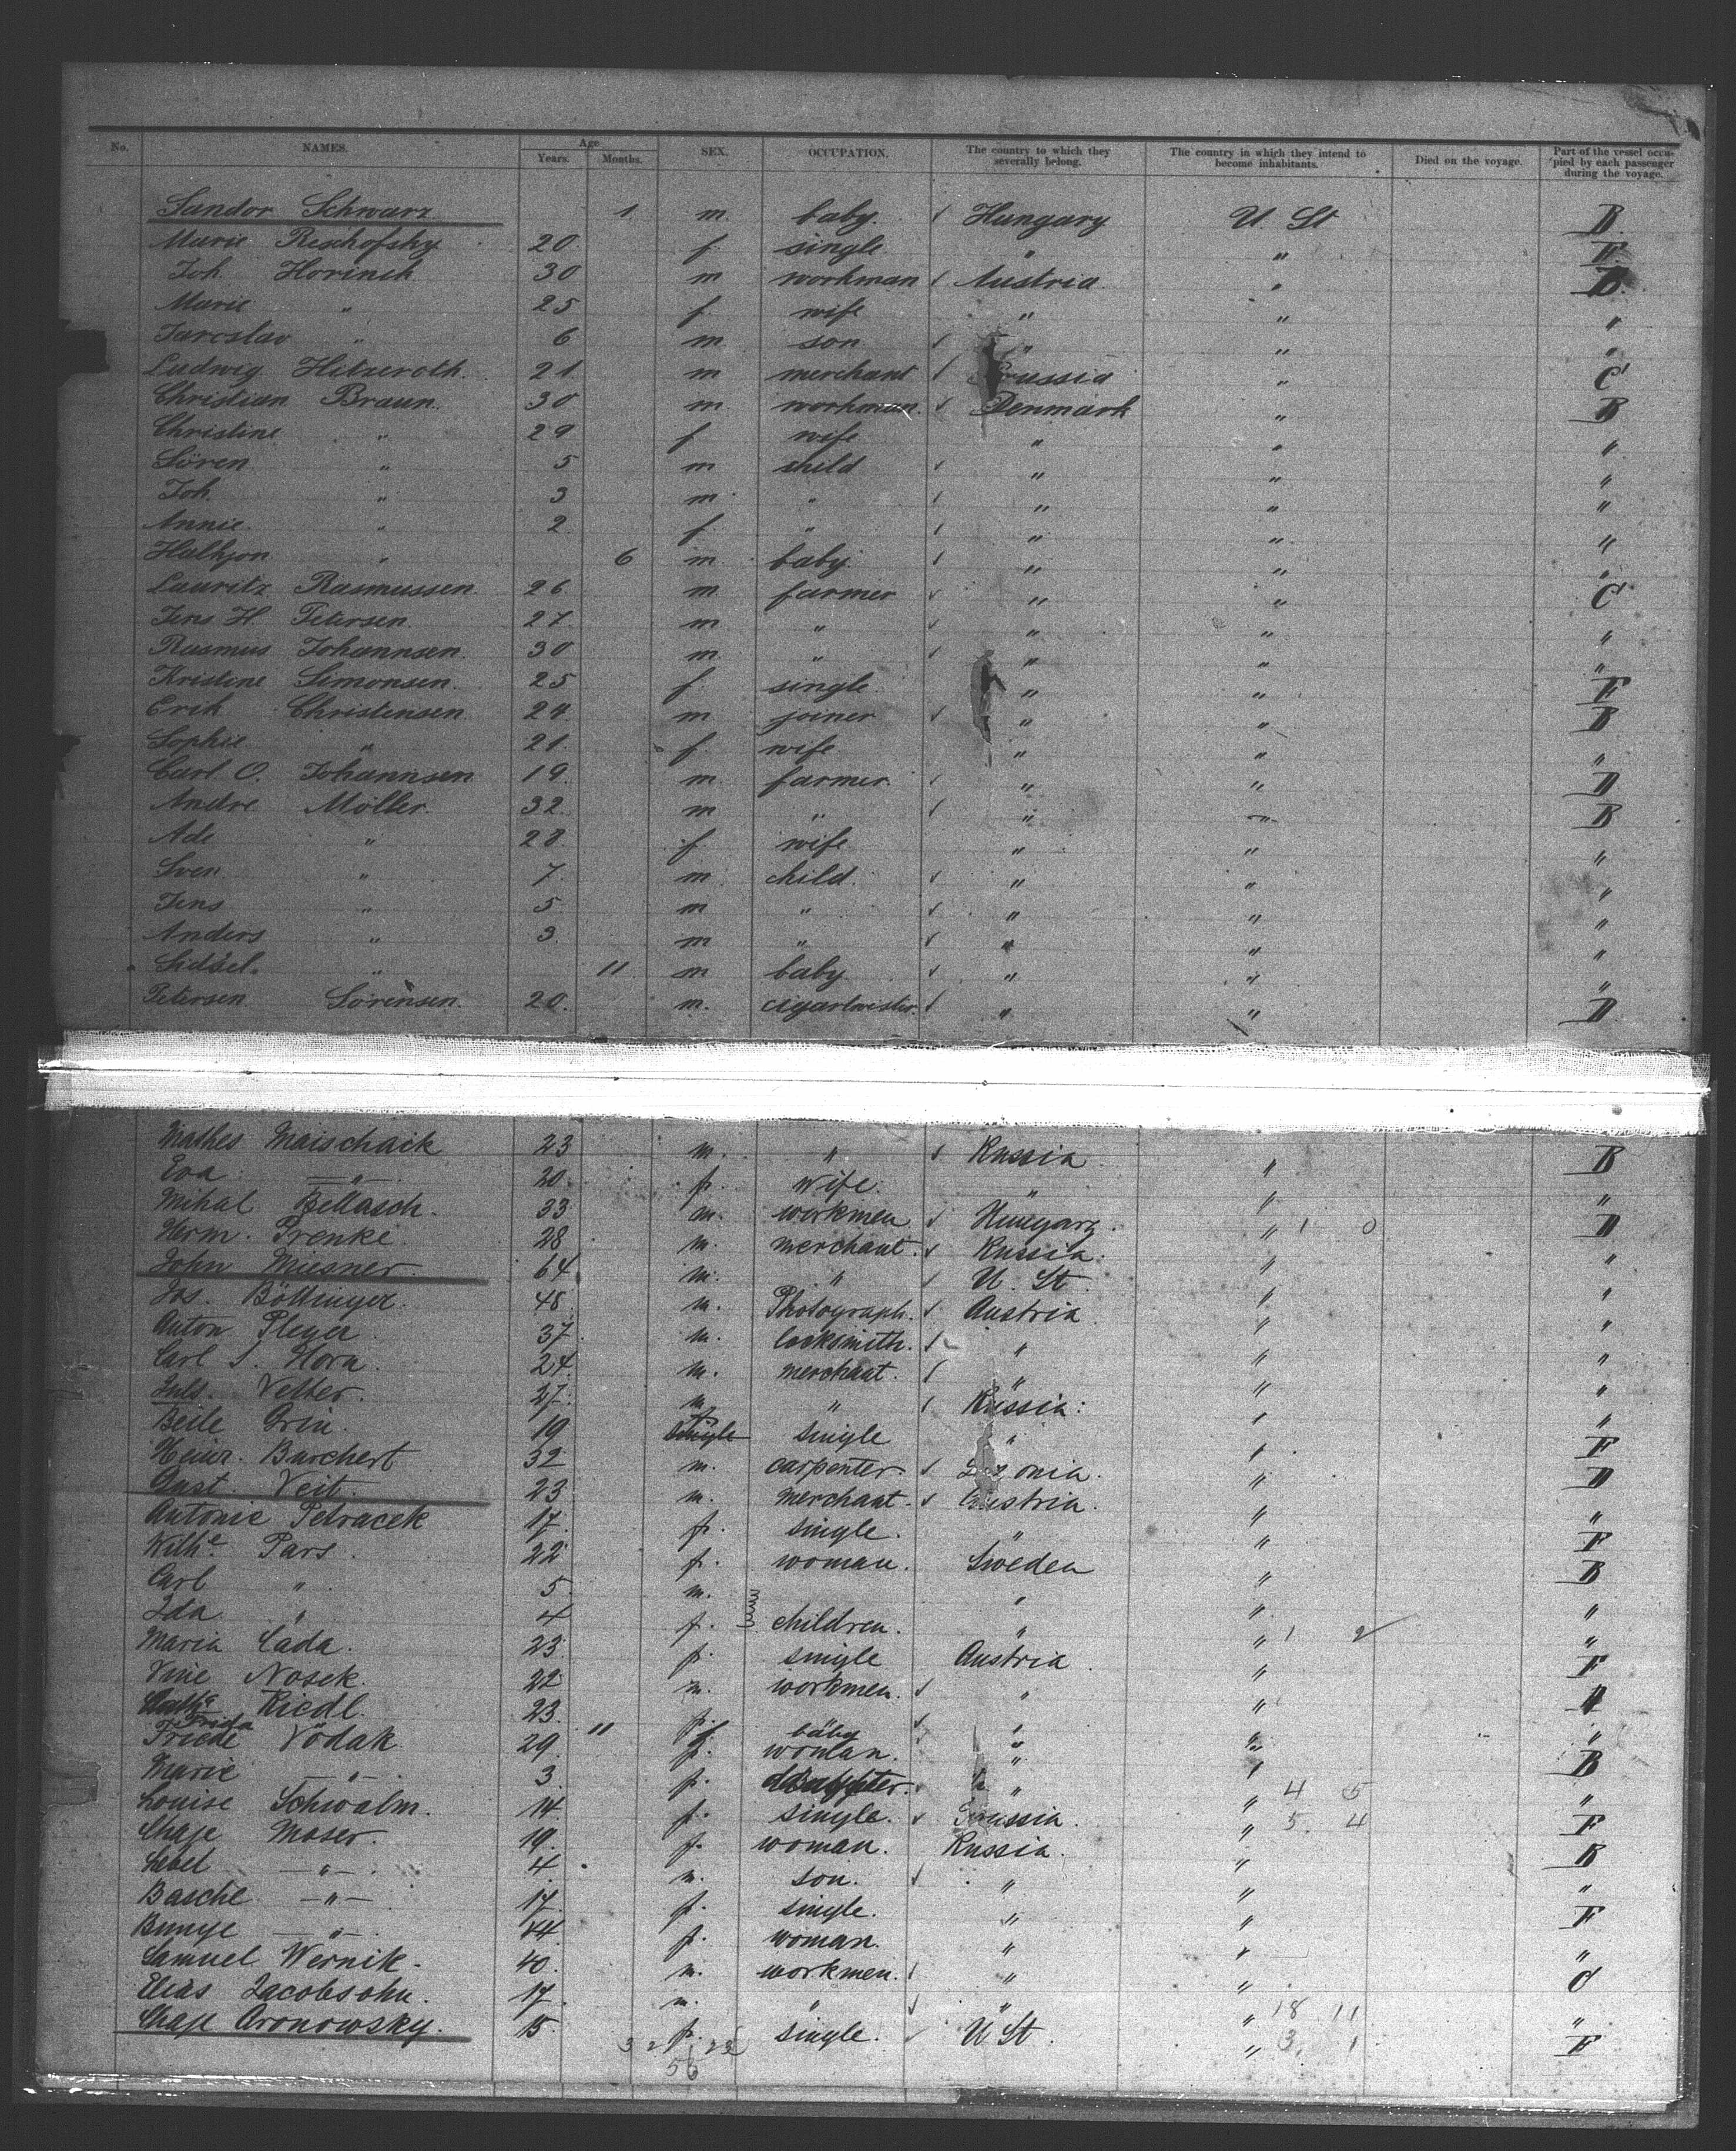 No. NAMES. Age Years. Months. SEX. OCCUPATION. The country to which they severally belong. The country in which they intend to become inhabitants. Died on the voyage. Part of the vessel occupied by each passenger during the voyage.
Sandor Schwarz 1 m. baby. Hungary U. St B.
Marie Reschofsky 20 f single " " F
Joh. Horinek 30 m workman Austria " B
Marie " 25 f. wife " " "
Jaroslav " 6 m son " " "
Ludwig Hitzeroth 21 m merchant Prussia " C
Christian Braun 30 m workman. Denmark " B
Christine " 29 f wife " " "
Sören " 5 m child " " "
Joh. " 3 m " " " "
Annie. " 2 f. " " " "
" 6 m baby " " "
Lauritz Rasmussen. 26 m farmer " " C
Jens H. Petersen. 27 m " " " "
Rasmus Johannsen. 30 m " " " "
Kristine Simonsen. 25 f single " " F
Erik Christensen 24 m joiner " " B
Sophie " 21 f. wife " " "
Carl O. Johannsen 19 m farmer. " " D
Andre Möller. 32 m " " " B
Ade " 28 f wife " " "
Sven " 7 m child. " " "
Jens " 5 m " " " "
Anders " 3 m " " " "
Sidsel " 11 m baby " " "
Petersen Sörensen. 20. m. cigartwister. " " D
Mathes Maischack 23 m. " Russia " B
Eva " 20. f. wife. " " "
Mihal Bellasch. 33 m. workmen Hungary. " 1 0 D
Herm. Prenke. 28 m. merchant. Russia. " "
John Miesner. 64 m. " U. St " "
Jos. Böttinger. 48 m. Photograph. Austria " "
Anton Pleyer 37 m. locksmith. " " "
Carl S. Horn. 24. m. merchant. " " "
Juls. Vetter. 27. m " Russia: " "
Beile Grin. 19 f single single " " F
Heinr. Burchert 32 m. carpenter. " D
Aust. Veit. 23 m. merchant. Austria. " "
Antonie Petracek 17. f. single. " " F
Wilhe. Pars. 22 f. woman. Sweden " B
Carl " 5 m. " " "
Ida " 4 f. children. " " 1 2 "
Maria Cada. 23. f. single Austria. " F
Nosek. 22 m. workmen. " " D
Riedl. 23. f. " " "
Frida 11 f. baby "
Friede Vodak 29. f. woman. " " B
Marie " 3. f. daughter. " " 4 5 "
Louise Schwalm. 14. f. single. Prussia. " 5. 4 F
Chaje Moser. 19. f. woman. Russia. " B
Lebel " 4 m. son. " " "
Basche " 17. f. single. " " F
" 44 f. woman. " " "
Samuel Wernik. 40. m. workmen. " " C
Elias Jacobsohn. 17. m. " " " 18 11 "
Chaje Aronowsky. 15. f. single. U St. " 3. 1 F
32 23
55